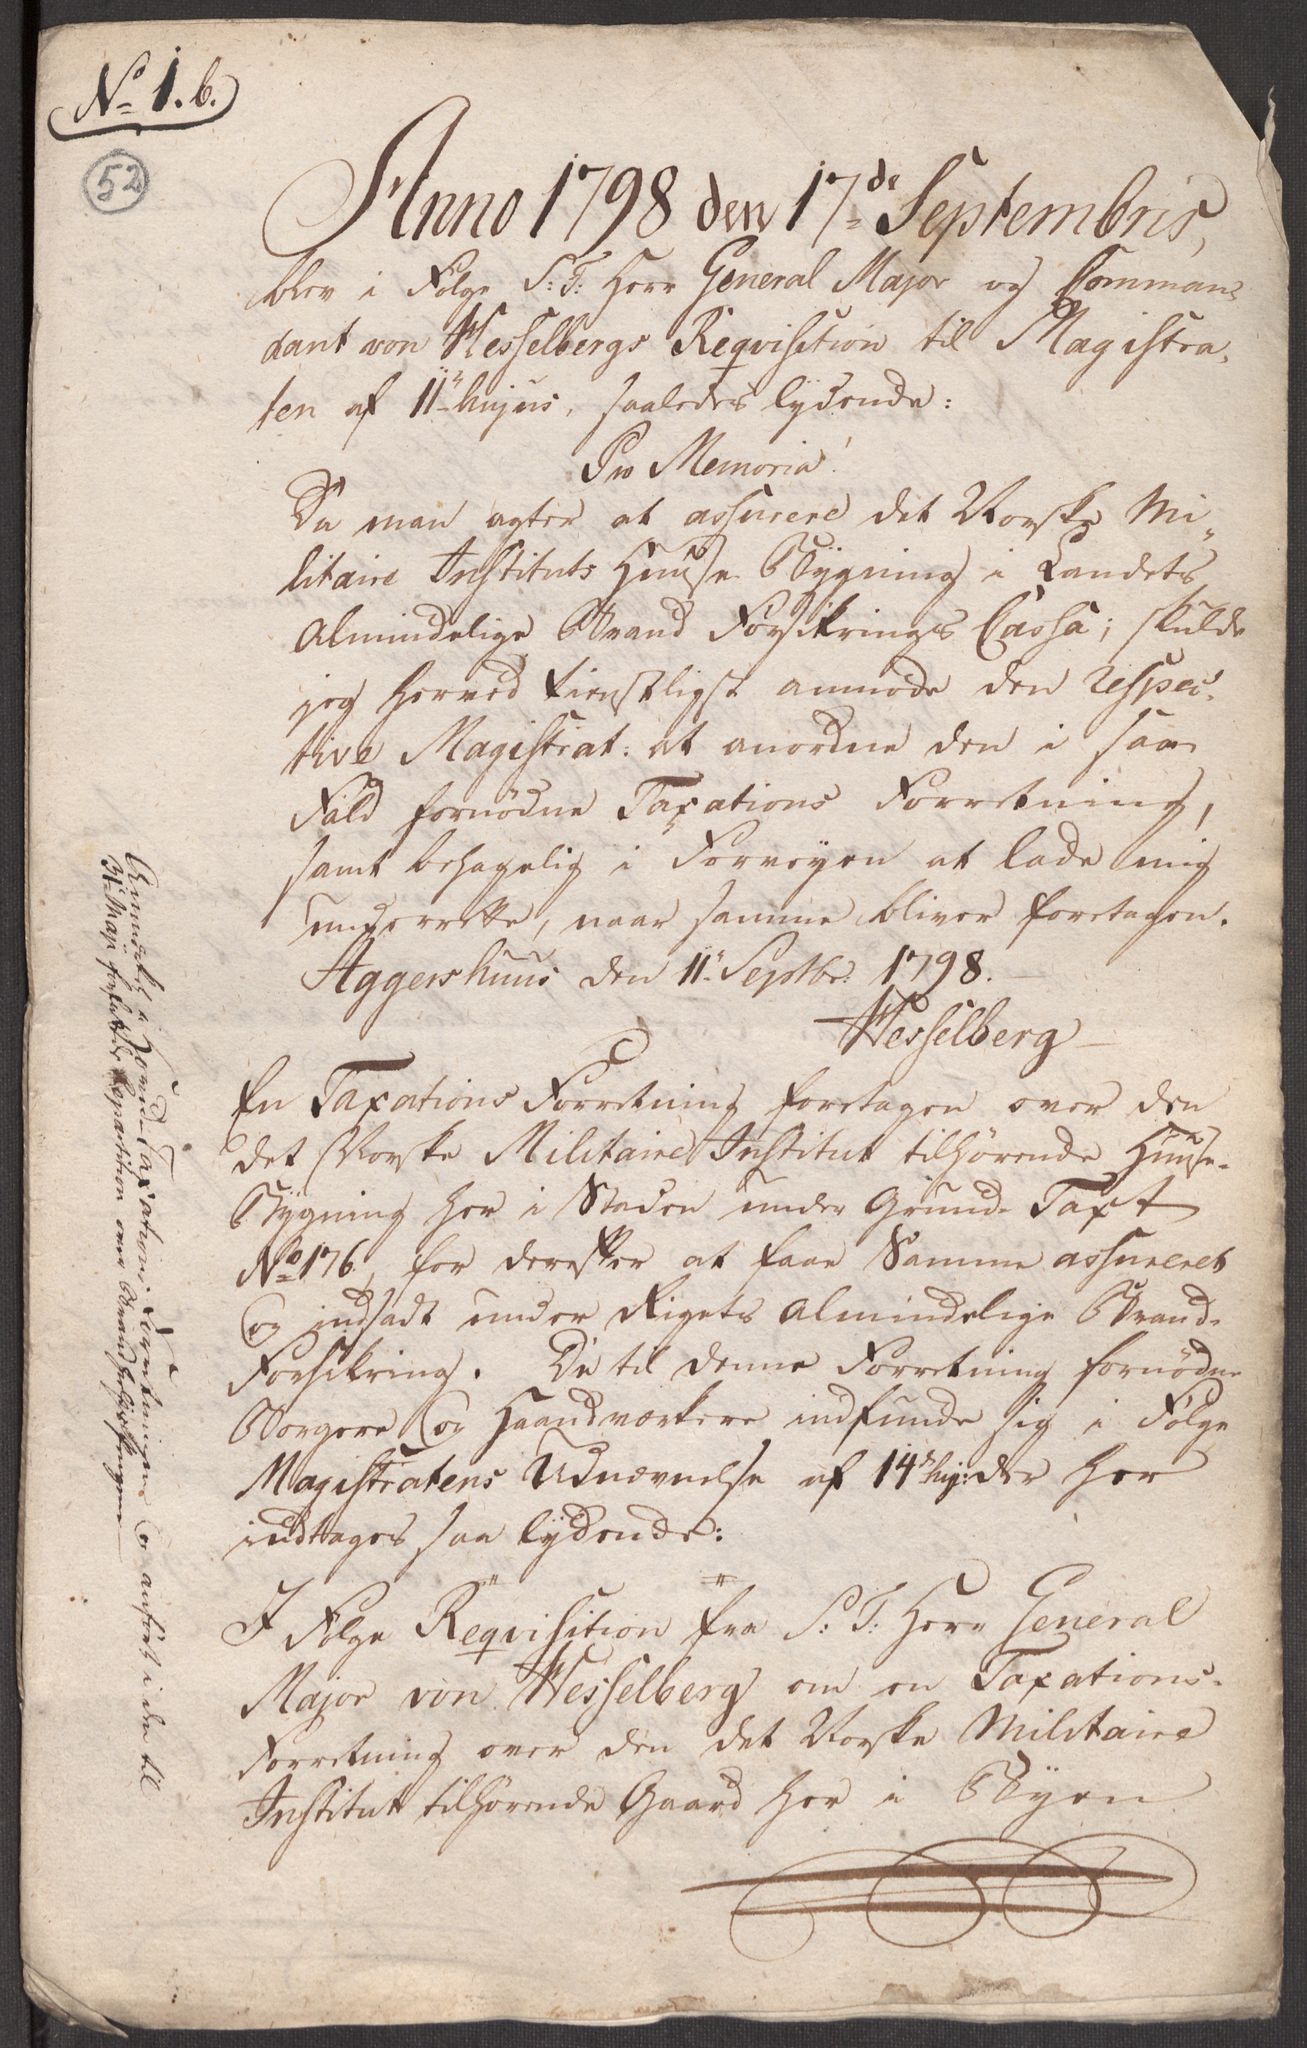 No 1. b.
52
Anno 1798 den 17de Septembris,
blev i Følge S: T: Herr General Major og Comman-
dant von Wesselbergs Reqvisition til Magistra-
ten af 11te hujus, saaledes lydende:
Pro Memoria!
Da man agter at assurere det Norske Mi-
litaire Instituts Huuse Bÿgning i Landets
Almindelige Brand Forsikrings Cassa; skulde
jeg herved tienstligst anmode den respec-
tive Magistrat: at anordne den i saa
Fald fornødne Taxations Forretning,
samt behagelig i Forveyen at lade mig
underrette, naar samme bliver foretagen.
Aggershuus den 11te Septbr: 1798.
Wesselberg
En Taxations Forretning foretagen over den
det Norske Militaire Institut tilhørende Huuse-
Bÿgning her i Staden under Grund-Taxt
No 176, for derefter at faae Samme assureret
og indsadt under Rigets Almindelige Brand-
Forsikring. De til denne Forretning fornødne
Borgere og Haandværkere indfunde sig i Følge
Magistratens Udnævnelse af 14de huj: der her
indtages saa lydende:
I Følge Reqvisition fra S: T: Herr General
Major von Wesselberg om en Taxations-
Forretning over den det Norske Militaire
Institut tilhørende Gaard her i Bÿen
Anmerkes i Hoved-Taxations Forretningen og anført i den til
31te Maji forfattede Repartition over Brandforsikringen